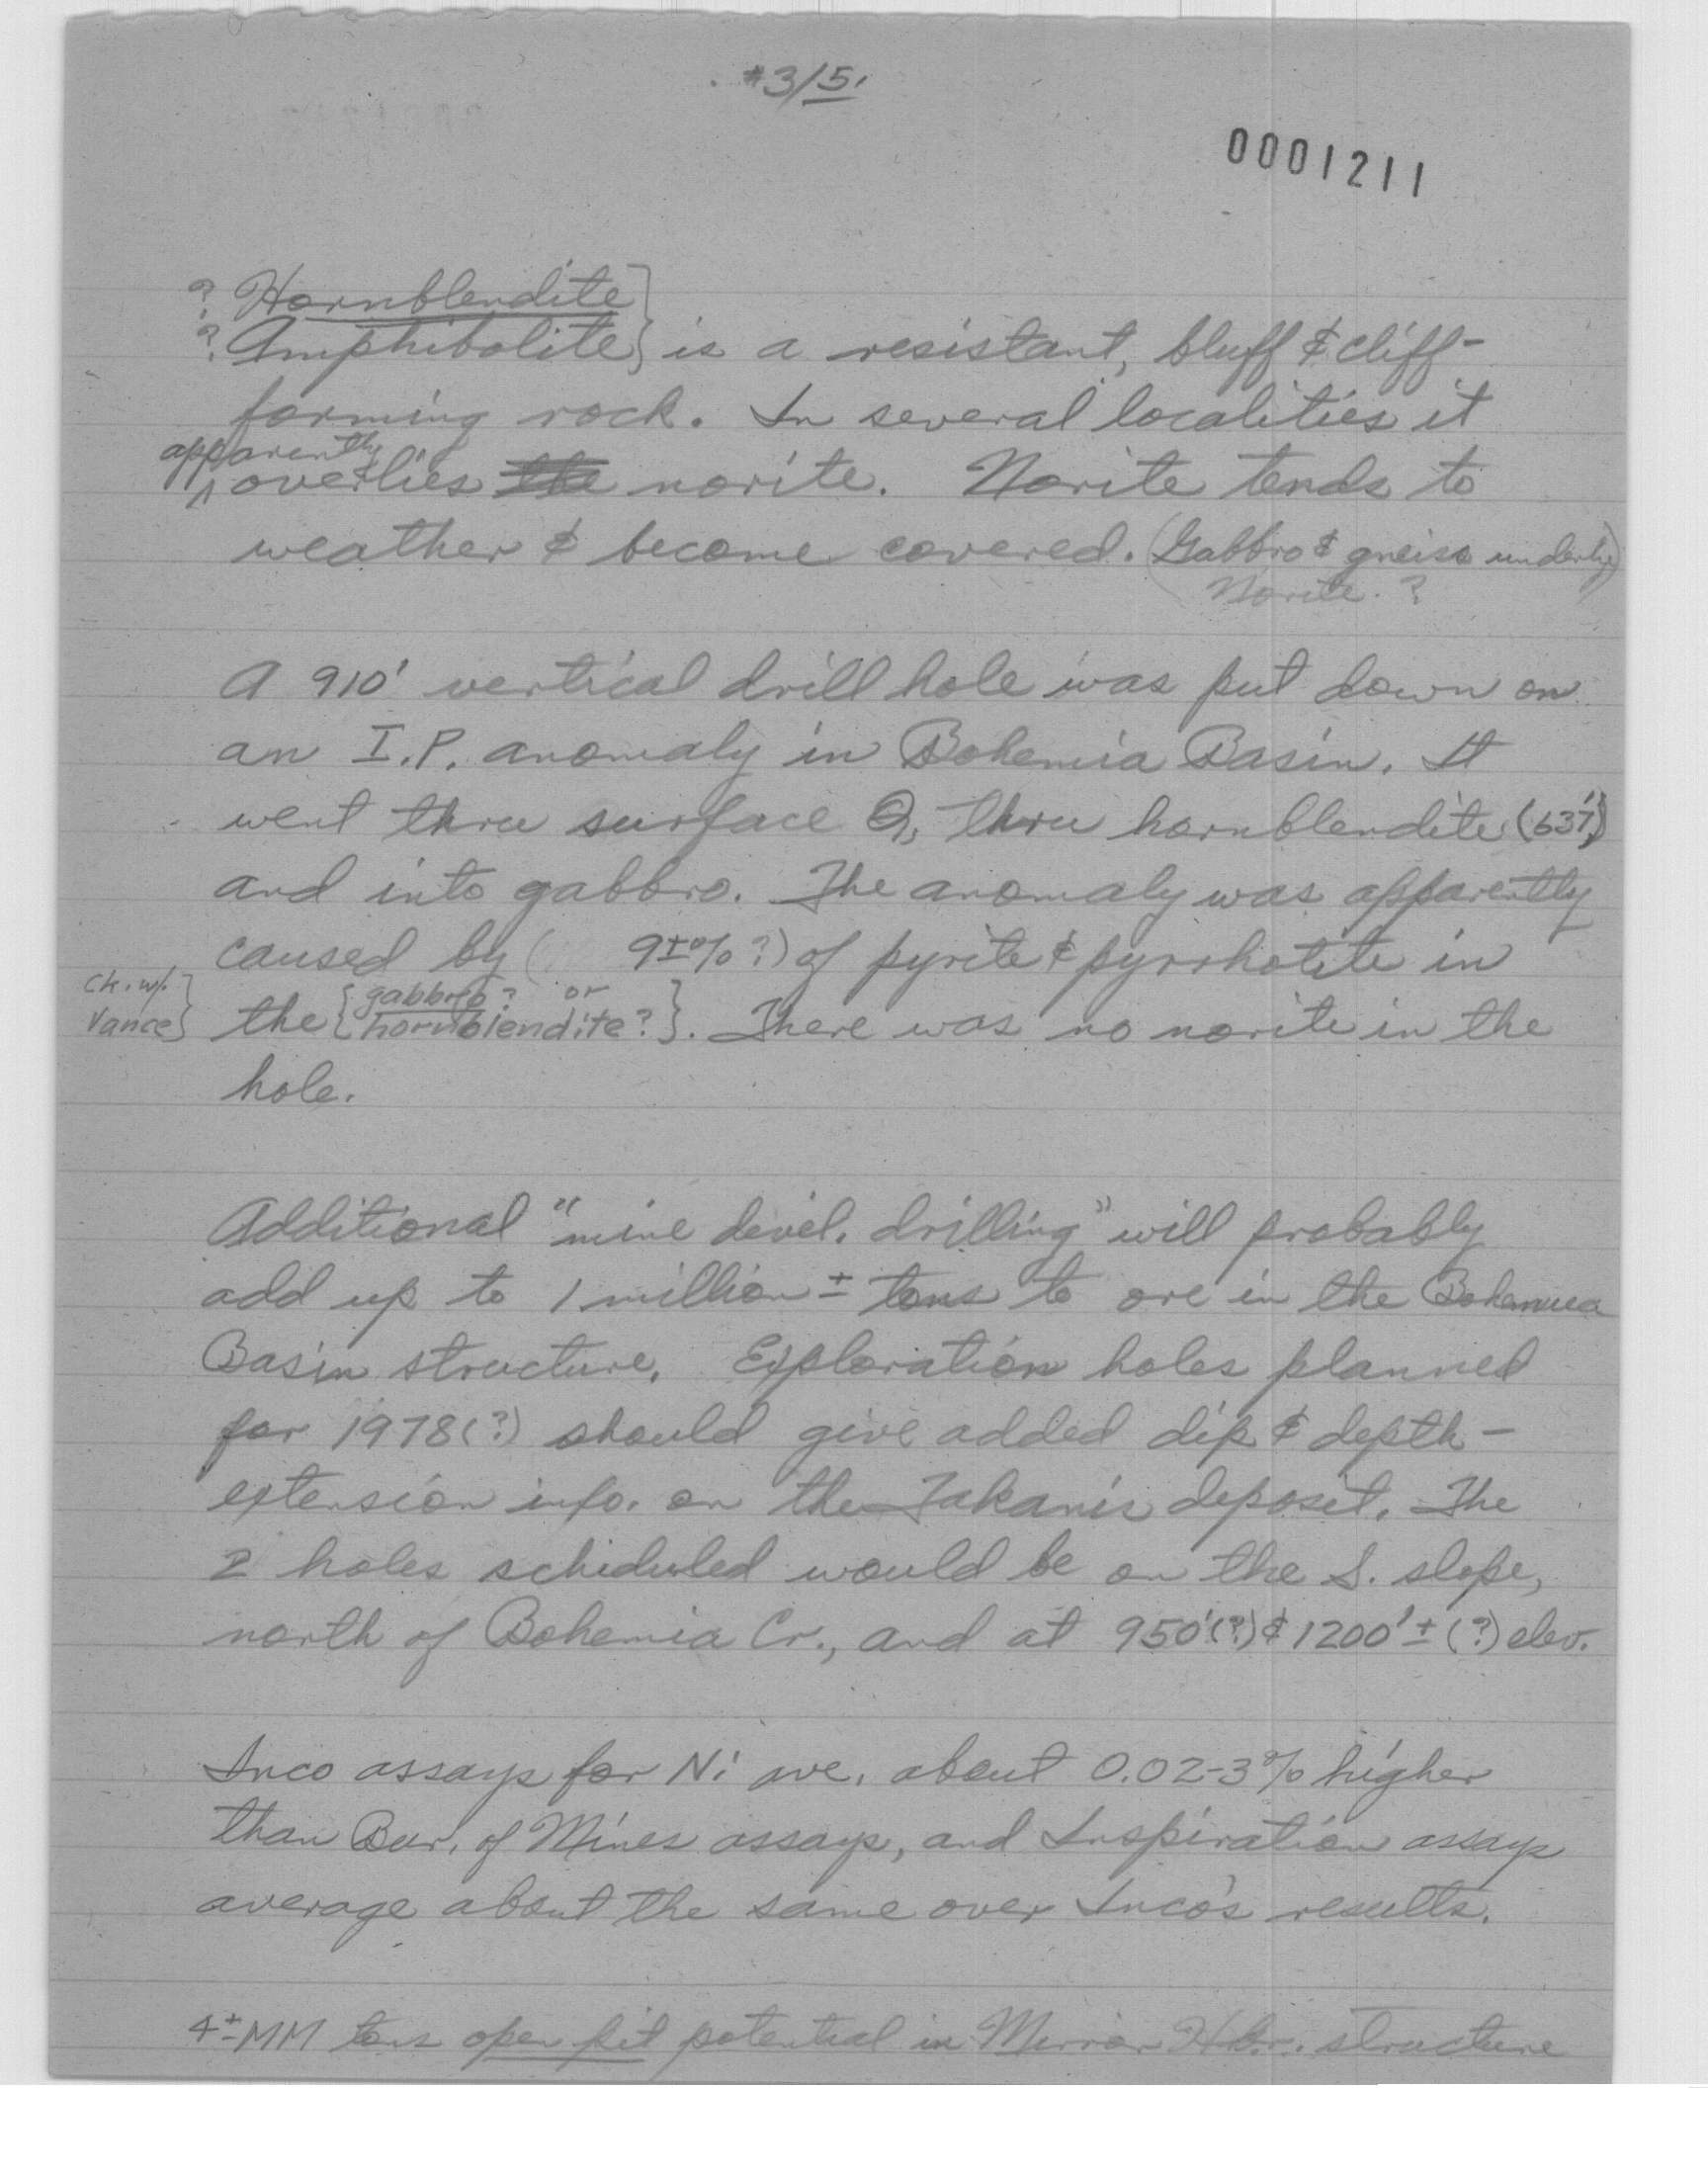 #3/5.
0001211
? Hornblendite }
? Amphibolite } is a resistant, bluff & cliff-
forming rock. In several localities it
apparently
overlies the norite. Norite tends to
weather & become covered. (Gabbro & gneiss underly
Norite. ?)
A 910' vertical drill hole was put down on
an I.P. anomaly in Bohemia Basin. It
went thru surface Q, thru hornblendite (637')
and into gabbro. The anomaly was apparently
caused by ( 9±% ?) of pyrite & pyrrhotite in
ck. w/. Vance } the { gabbro? or
hornblendite? }. There was no norite in the
hole.
Additional "mine devel. drilling" will probably
add up to 1 million ± tons to ore in the Bohemia
Basin structure. Exploration holes planned
for 1978(?) should give added dip & depth-
extension info. on the Takanis deposit. The
2 holes scheduled would be on the S. slope,
north of Bohemia Cr., and at 950'(?) & 1200'± (?) elev.
Inco assays for Ni ave. about 0.02-3% higher
than Bur. of Mines assays, and Inspiration assays
average about the same over Inco's results.
4±MM tons open pit potential in Mirror Hbr. structure